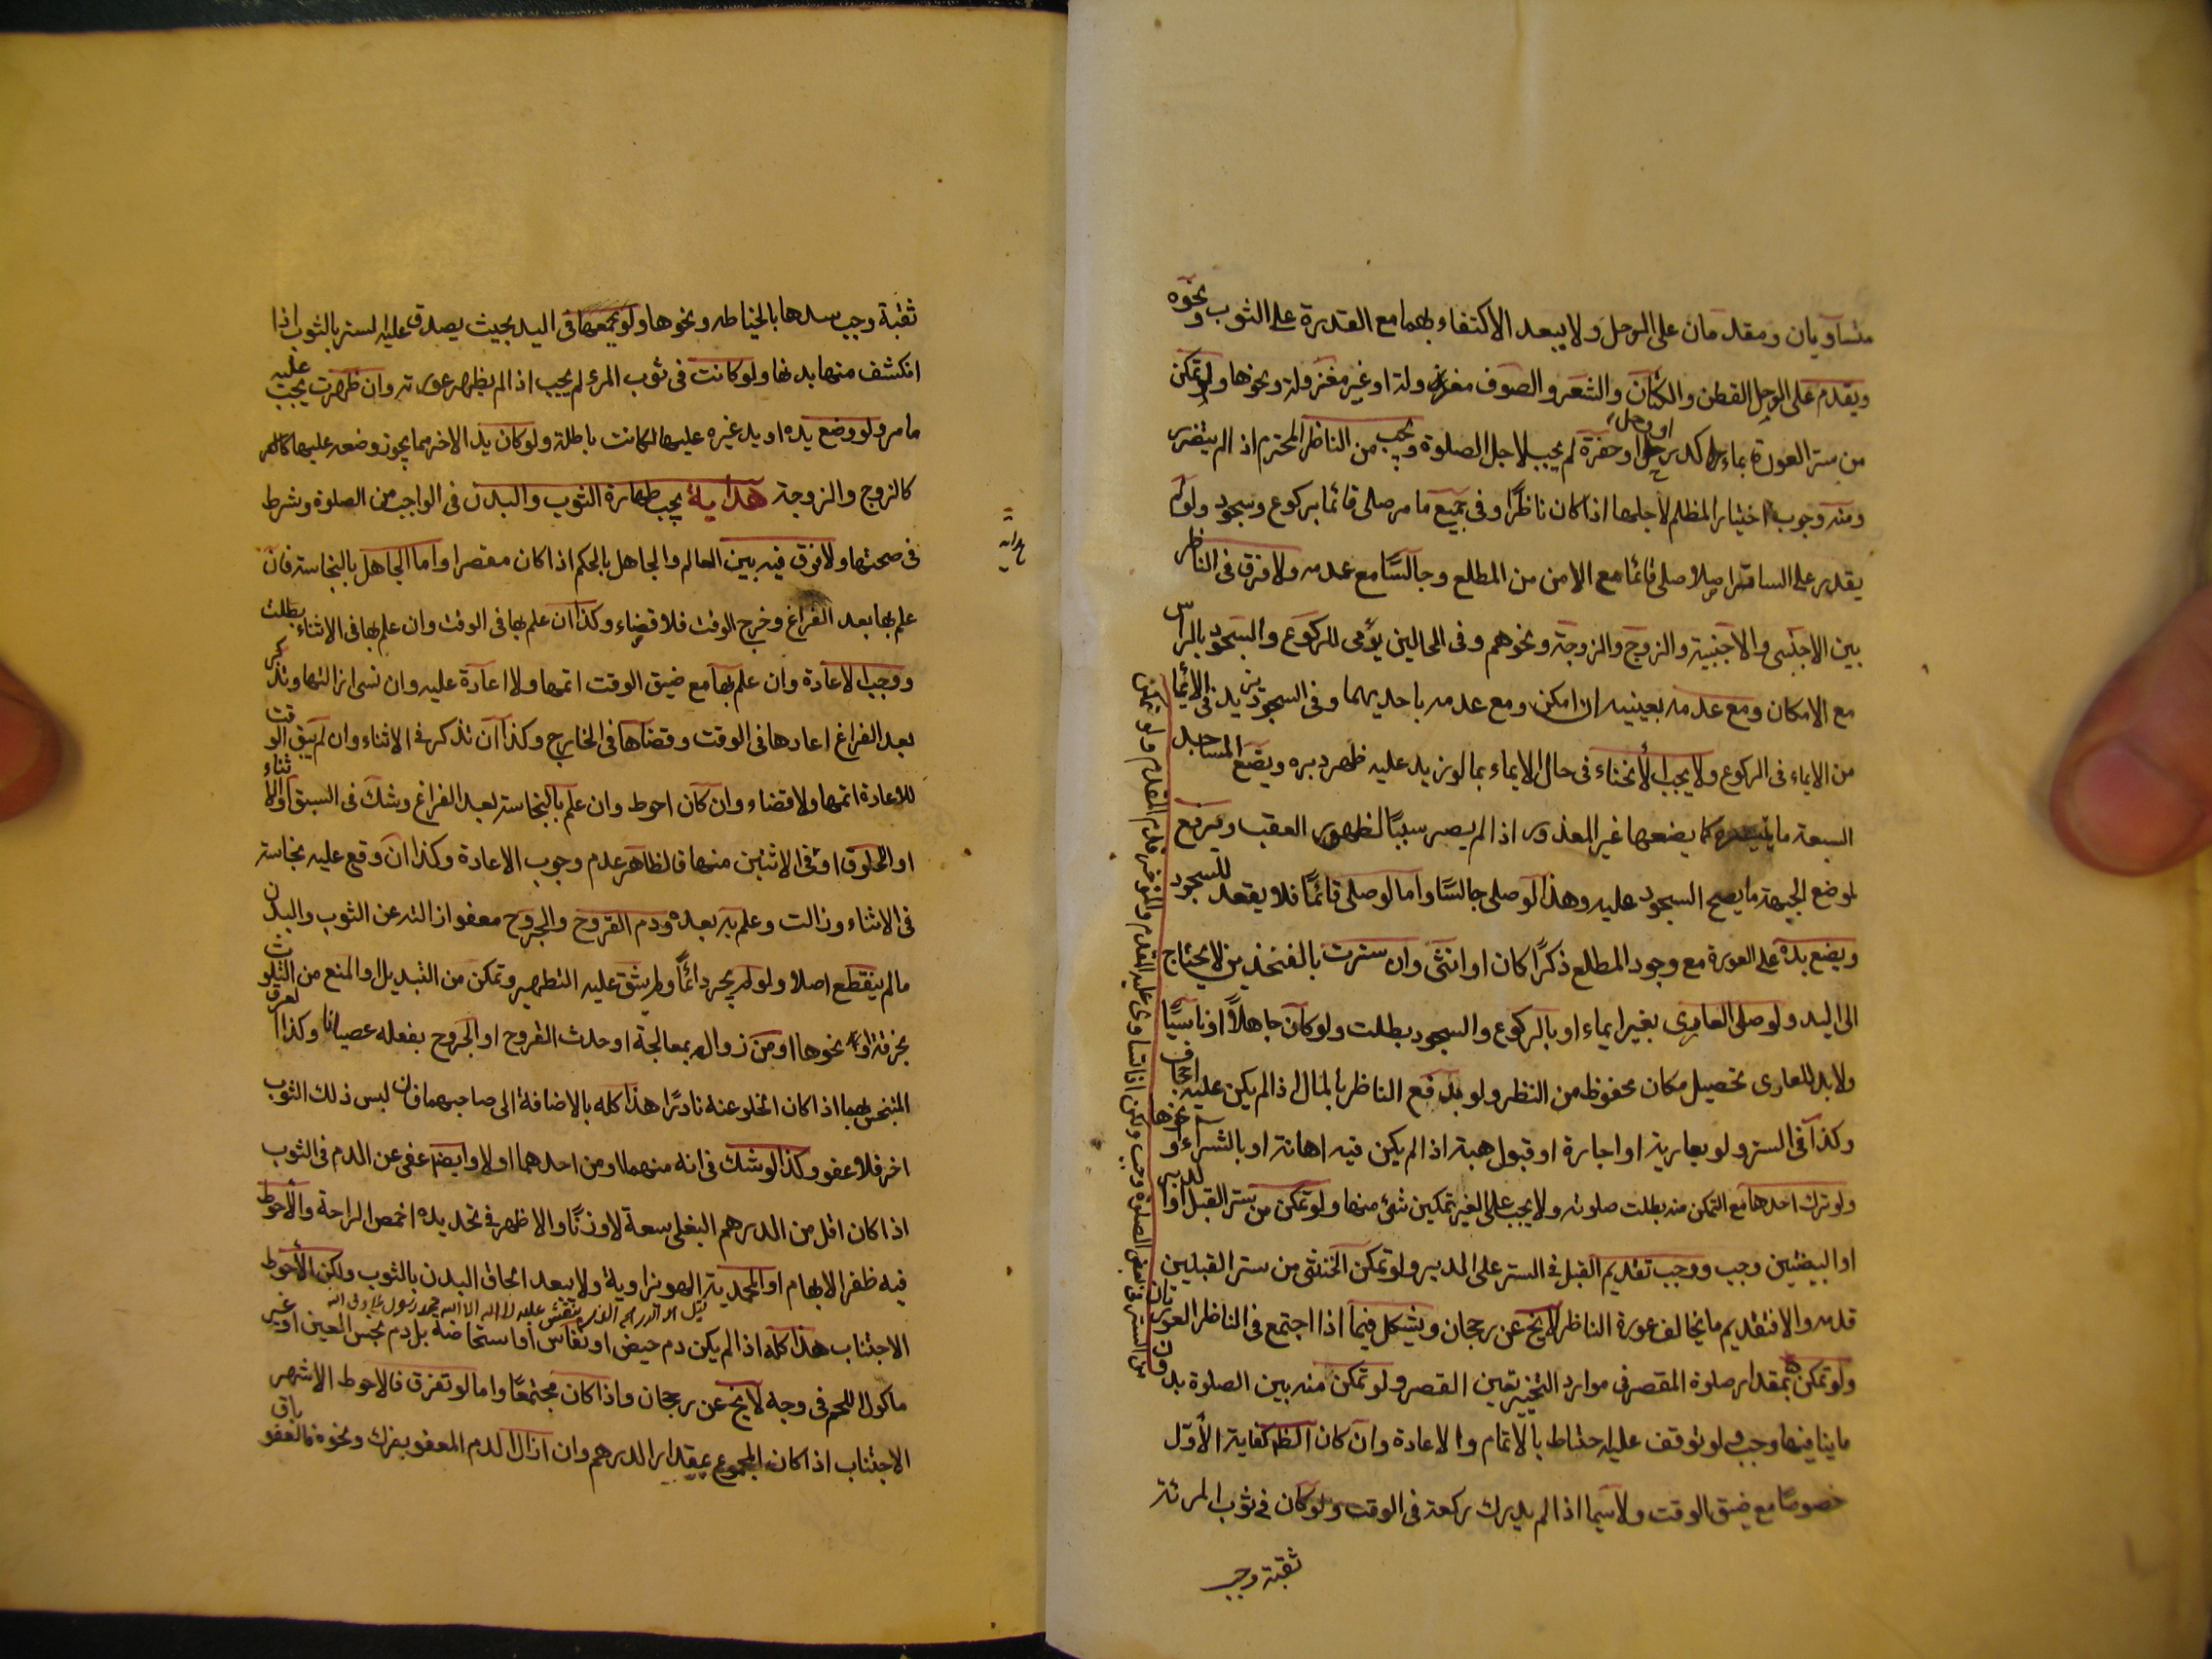 متساويان ومقدمان على الوحل ولا يبعد الاكتفاء بهما مع القدرة على الثوب ونحوه
ويقدم على الوحل القطن والكتان والشعر والصوف مغزولة او غير مغزولة ونحوها ولو تمكن
من ستر العورة بماء كدر او وحل او حفرة لم يجب لاجل الصلوة ويجب من الناظر المحترم اذا لم يتضرر
ومنه وجوب اختيار المظلم لاجلها اذا كان ناظرًا وفي جميع ما مر صلى قائما بركوع وسجود ولو لم
يقدر على الساتر اصلا صلى قائما مع الامن من المطلع وجالسًا مع عدمه ولا فرق في الناظر
بين الاجنبي والاجنبية والزوج والزوجة ونحوهم وفي الحالين يؤمي للركوع والسجود بالراس
مع الامكان ومع عدمه بعينيه ان امكن ومع عدمه باحديهما وفي السجود يزيد في الايماء
من الايماء في الركوع ولا يجب الانحناء في حال الايماء بما لو زيد عليه ظهر دبره ويضع المساجد
السبعة كما يضعها غير المعذور اذا لم يصر سببًا لظهور العقب ويرفع
لوضع الجبهة ما يصح السجود عليه وهذا لو صلى جالسًا واما لو صلى قائمًا فلا يقعد للسجود
ويضع يده على العورة مع وجود المطلع ذكرًا كان او انثى وان سترت بالفخذين لا يحتاج
الى اليد ولو صلى العاري بغير ايماء او بالركوع والسجود بطلت ولو كان جاهلًا او ناسيًا
ولا بد للعاري تحصيل مكان محفوظ من النظر ولو بدفع الناظر بالمال اذا لم يكن عليه اجحاف
وكذا في الستر ولو بعارية او اجارة او قبول هبة اذا لم يكن فيه اهانة او بالشراء ونحوها
ولو ترك احدها مع التمكن منه بطلت صلوته ولا يجب على الغير تمكين شئ منها ولو تمكن من ستر القبل او الدبر
او البيضتين وجب ووجب تقديم القبل في الستر على الدبر ولو تمكن الخنثى من ستر القبلين
قدمه والا فتقديم ما يخالف عورة الناظر لا يخ عن رجحان ويشكل فيما اذا اجتمع في الناظر العورتان
ولو تمكن بمقدار صلوة المقصر في موارد التخيير تعين القصر ولو تمكن منه بين الصلوة بدون
ما ينافيها وجب ولو توقف عليه احتاط بالاتمام والاعادة وان كان الظ كفاية الاول
خصوصًا مع ضيق الوقت ولا سيما اذا لم يدرك ركعة في الوقت ولو كان في ثوب المرئة
ثقبة وجب
من الستر في بعض الصلوة وجب
ثقبة وجب سدها بالخياطه ونحوها ولو بجمعها في اليد بحيث يصدق عليه الستر بالثوب اذا
انكشف منها بدنها ولو كانت في ثوب المرء لم يجب اذا لم يظهر عورته وان ظهرت يجب عليه
ما مر ولو وضع يده او يد غيره عليها لكانت باطلة ولو كان يد الاخر مما يجوز وضعه عليها
كالزوج والزوجة هداية يجب طهارة الثوب والبدن في الواجب من الصلوة وشرط
هداية
في صحتها ولا فرق فيه بين العالم والجاهل بالحكم اذا كان مقصرا واما الجاهل بالنجاسة فان
علم بها بعد الفراغ وخرج الوقت فلا قضاء وكذا ان علم بها في الوقت وان علم بها في الاثناء بطلت
ووجب الاعادة وان علم بها مع ضيق الوقت اتمها ولا اعادة عليه وان نسي ازالتها وتذكر
بعد الفراغ اعادها في الوقت وقضاها في الخارج وكذا ان تذكر في الاثناء وان لم يبق الوقت
للاعادة اتمها ولا قضاء وان كان احوط وان علم بالنجاسة بعد الفراغ وشك في السبق او الاثناء
او اللحوق او في الاثنين منها فالظاهر عدم وجوب الاعادة وكذا ان وقع عليه نجاسة
في الاثناء وزالت وعلم به بعده ودم القروح والجروح معفو ازالته عن الثوب والبدن
ما لم ينقطع اصلا ولو لم يجر دائمًا ولم يشق عليه التطهير وتمكن من التبديل او المنع من التلوث
بخرقة او نحوها او من زواله بمعالجة او حدث القروح او الجروح بفعله عصيانا وكذا العرق
المتنجس بهما اذا كان الخلو عنه نادرًا هذا كله بالاضافة الى صاحبهما فان لبس ذلك الثوب
اخر فلا عفو وكذا لو شك في انه منهما او من احدهما او لا وايضا عفي عن الدم في الثوب
اذا كان اقل من الدرهم البغلي سعة لا وزنًا والاظهر في تحديده اخمص الراحة والاحوط
فيه ظفر الابهام او المحمدية الهويزاوية ولا يبعد الحاق البدن بالثوب ولكن الاحوط
ينقش عليه لا اله الا الله محمد رسول الله
الاجتناب هذا كله اذا لم يكن دم حيض او نفاس او استحاضة بل دم نجس العين او غير
ماكول اللحم في وجه لا يخ عن رجحان واذا كان مجتمعًا واما لو تفرق فالاحوط الاشهر
الاجتناب اذا كان المجموع بمقدار الدرهم وان ازال الدم المعفو بفرك ونحوه فالعفو باق